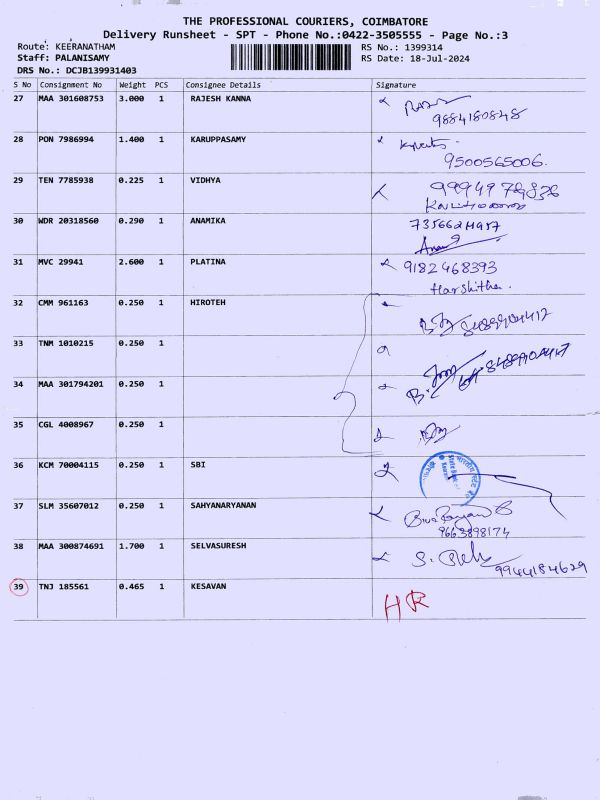 THE PROFESSIONAL COURIERS, COIMBATORE
Delivery Runsheet - SPT - Phone No.:0422-3505555 - Page No.:3
Route: KEERANATHAM RS No.: 1399314
Staff: PALANISAMY RS Date: 18-Jul-2024
DRS No.: DCJB139931403
S No Consignment No Weight PCS Consignee Details Signature
27 MAA 301608753 3.000 1 RAJESH KANNA
9884180848
28 PON 7986994 1.400 1 KARUPPASAMY
9500565006.
29 TEN 7785938 0.225 1 VIDHYA
30 WDR 20318560 0.290 1 ANAMIKA
31 MVC 29941 2.600 1 PLATINA 9182468393
Harshitha.
32 CMM 961163 0.250 1 HIROTEH
33 TNM 1010215 0.250 1
34 MAA 301794201 0.250 1
35 CGL 4008967 0.250 1
36 KCM 70004115 0.250 1 SBI
37 SLM 35607012 0.250 1 SAHYANARYANAN
9663898174
38 MAA 300874691 1.700 1 SELVASURESH
9944184629
39 TNJ 185561 0.465 1 KESAVAN
HR